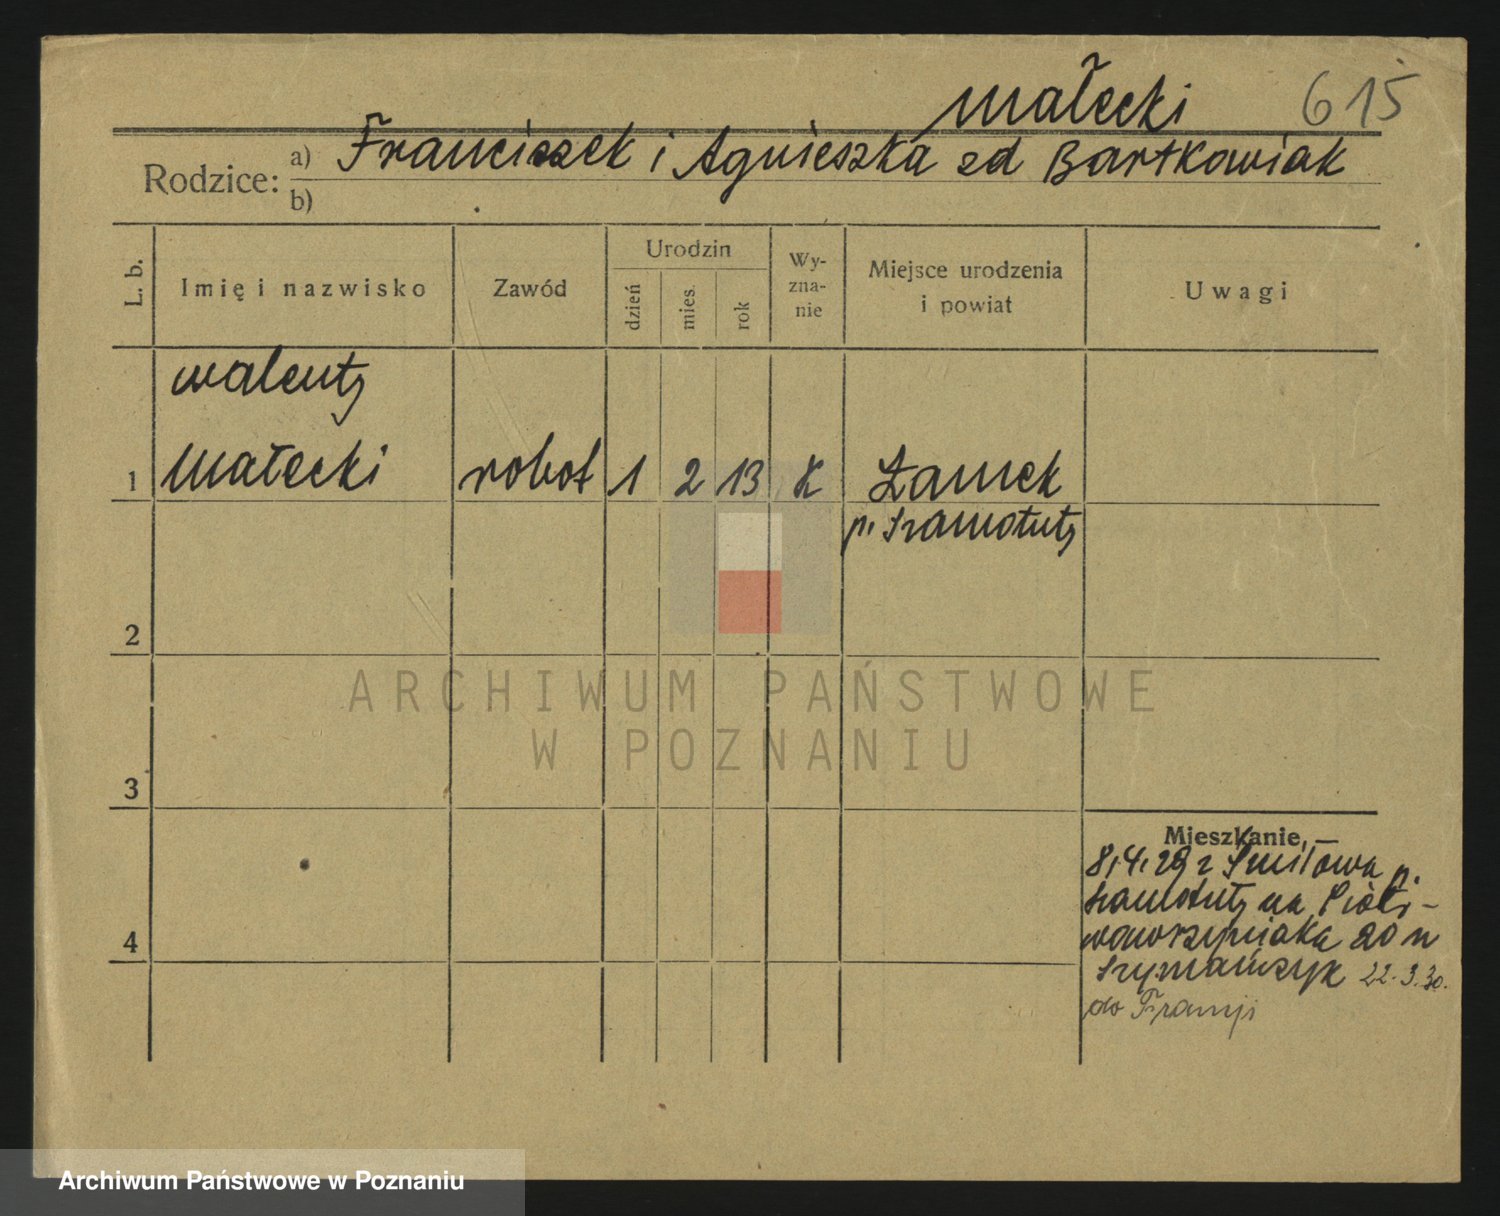 Małecki 615
Rodzice: a) Franciszek i Agnieszka zd Bartkowiak
b)
L. b. Imię i nazwisko Zawód Urodzin dzień mies. rok Wy-zna-nie Miejsce urodzenia i powiat Uwagi
Walenty
1 Małecki robot 1 2 13 K Zamek
p. Szamotuły
2
ARCHIWUM PAŃSTWOWE
W POZNANIU
3
Mieszkanie, —
8.4.29 z Śmiłowa p.
Szamotuły na
20 u
4
Szymańczyk 22.3.30.
do Francji
Archiwum Państwowe w Poznaniu